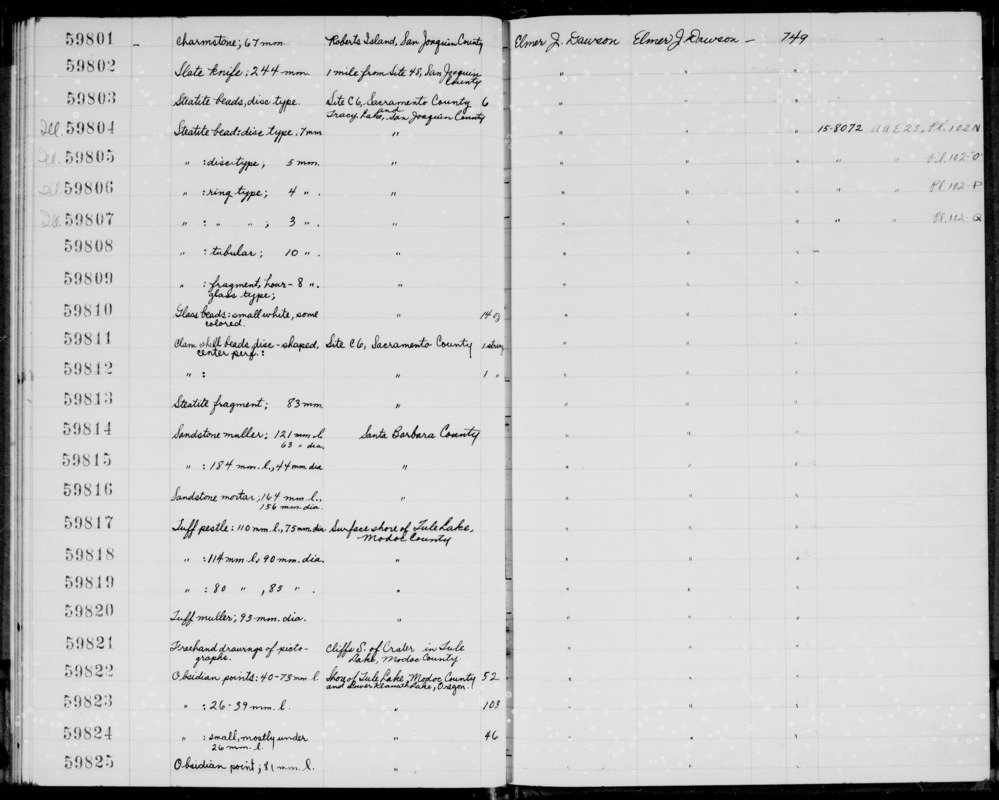 59801 – Charmstone; 67 mm. Roberts Island, San Joaquin County Elmer J. Dawson Elmer J Dawson – 749
59802 Slate knife; 244 mm. 1 mile from Site 45, San Joaquin County " " "
59803 Steatite beads, disc type. Site C6, Sacramento County and Tracy Lake, San Joaquin County 6 " " "
Ill. 59804 Steatite bead: disc type; 7 mm " " " " 15-8072 UAE 25, Pl. 102 N
Ill. 59805 " : disc type; 5 mm. " " " " " " Pl. 102-O
Ill. 59806 " : ring type; 4 " . " " " " " " Pl. 102-P
Ill. 59807 " : " " ; 3 " . " " " " " " Pl. 102-Q
59808 " : tubular; 10 " . " " " " –
59809 " : fragment, hour- 8 " .
glass type; " " " "
59810 Glass beads: small white, some
colored. " 14 oz " " "
59811 Clam shell beads, disc-shaped, Site C6, Sacramento County 1 string " " "
center perf. :
59812 " : " 1 " " " "
59813 Steatite fragment; 83 mm " " " "
59814 Sandstone muller; 121 mm l. Santa Barbara County " " "
63 " dia.
59815 " : 184 mm. l., 44 mm. dia " " " "
59816 Sandstone mortar; 164 mm l.,
156 mm. dia. " " " "
59817 Tuff pestle: 110 mm l., 75 mm. dia Surface shore of Tule Lake,
Modoc County " " "
59818 " : 114 mm l, 90 mm. dia. " " " "
59819 " : 80 " , 85 " . " " " "
59820 Tuff muller; 95 mm. dia. " " " "
59821 Freehand drawings of picto- Cliffs S. of Crater in Tule
graphs. Lake, Modoc County. " " "
59822 Obsidian points: 40-73 mm l. Shore of Tule Lake, Modoc County 52
and Lower Klamath Lake, Oregon. " " "
59823 " : 26-39 mm. l. " 103 " " "
59824 " : small, mostly under " 46 " " "
26 mm. l.
59825 Obsidian point; 81 mm. l. " " " "